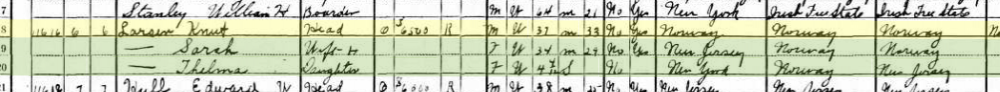 7 Stanley William H Boarder M W 64 m 21 No Yes New York Irish Free State Irish Free State
8 1616 6 6 Larsen Knut Head O 6500 R M W 37 m 33 No Yes Norway Norway Norway No
9 — Sarah Wife H F W 34 m 29 No Yes New Jersey Norway Norway
20 — Thelma Daughter F W S No New York Norway New Jersey
21 7 7 Hull Edward W Head O R M W 38 m No Yes New Jersey New Jersey New Jersey